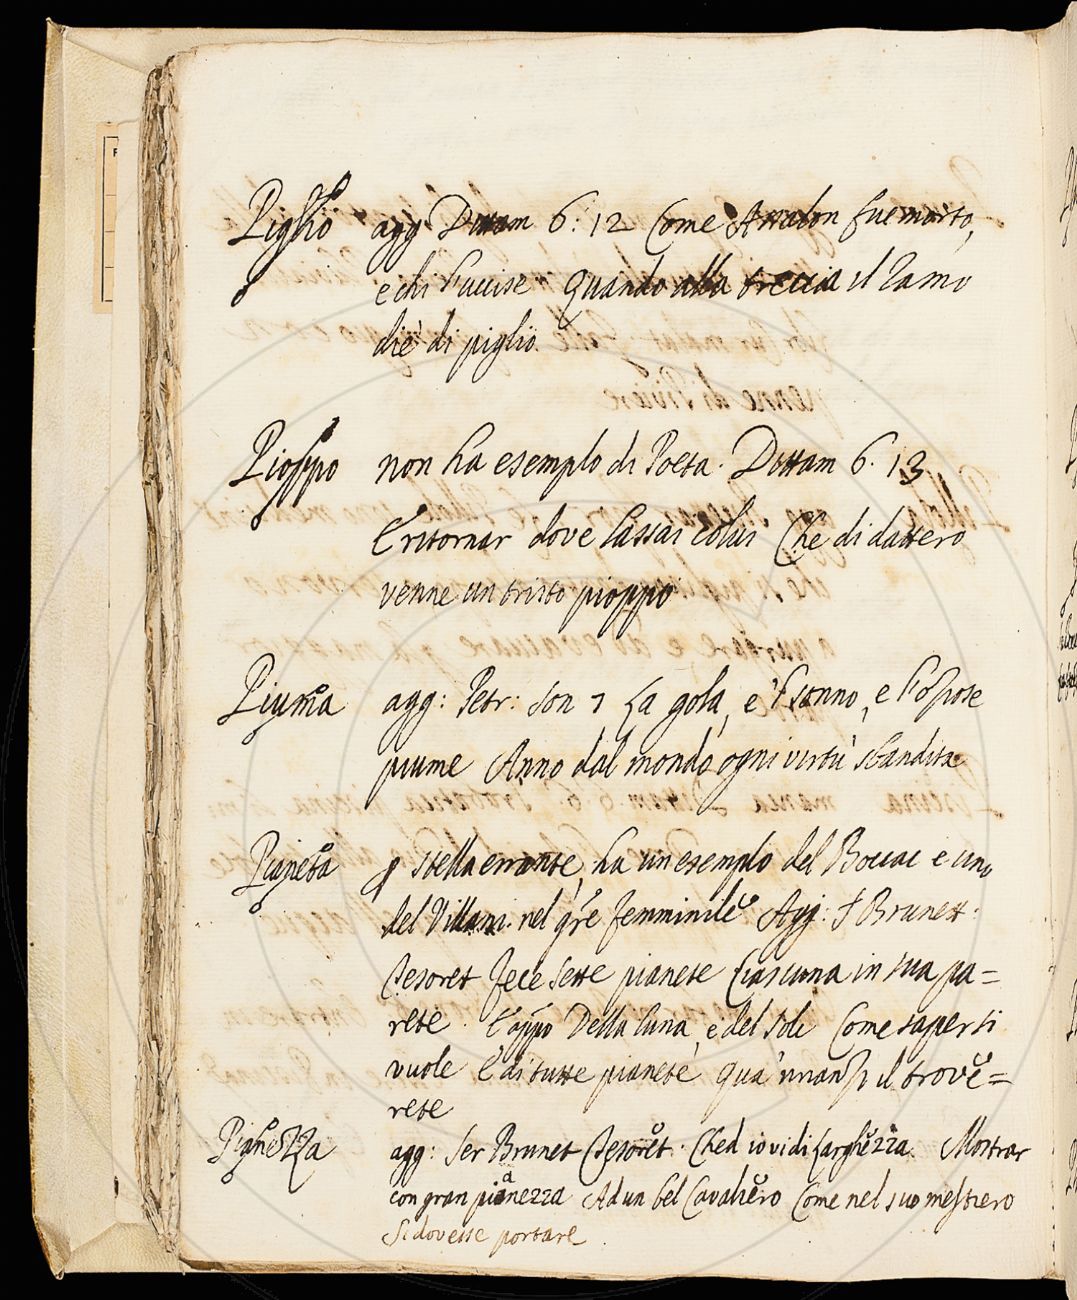 Piglio agg: Dittam 6. 12 Come Assalon fue morto,
e chi l'uccise quando alla treccia il ramo
diè di piglio.
Pioppo non ha esemplo di Poeta. Dittam 6. 13
E ritornar dove lassai colui Che di dattero
venne un tristo pioppo
Piuma agg: Petr: Son 7 La gola, e 'l sonno, e l'oziose
piume Anno dal mondo ogni virtù sbandita
Pianeta p stella errante, ha un esemplo del Boccac e uno
del Villani nel gre femminile Agg: S Brunett:
Tesoret fece sette pianete Ciascuna in sua pa=
rete. E appo Della luna, e del sole Come saper si
vuole E di tutte pianete qua 'nnanzi il trove=
rete
Pianezza agg: Ser Brunet Tesoret. Ched io vidi Larghezza Mostrar
con gran pianezza Ad un bel Cavaliero Come nel suo mestiero
Si dovesse portare